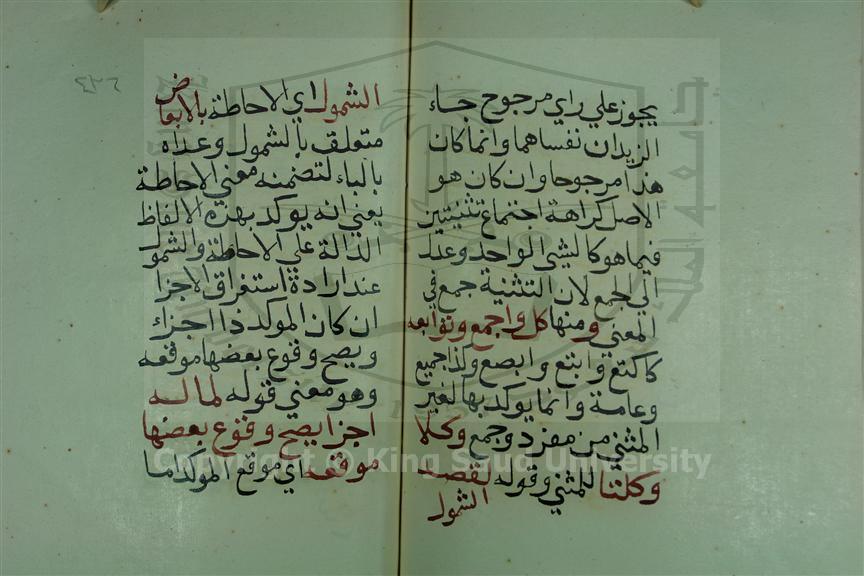 يجوز علي راي مرجوح جاء
الزيدان نفساهما وانما كان
هذا مرجوحا وان كان هو
الاصل كراهة اجتماع تثنيتين
فيما هو كالشيئ الواحد وعدل
الي الجمع لان التثنية جمع في
المعني ومنها كل واجمع وتوابعه
كاكتع وابتع وابصع وكذا جميع
وعامة وانما يوكد بها لغير
المثني من مفرد وجمع وكلا
وكلتا للمثني وقوله لقصد
الشمول
٤٣٦
الشمول اي الاحاطة بالابعاض
متعلق بالشمول وعداه
بالباء لتضمنه معني الاحاطة
يعني انه يوكد بهذه الالفاظ
الدالة علي الاحاطة والشمول
عند ارادة استغراق الاجزا
ان كان الموكد ذا اجزاء
ويصح وقوع بعضها موقعه
وهو معني قوله لما له
اجزا يصح وقوع بعضها
موقعه اي موقع الموكد اما
Copyright © King Saud University